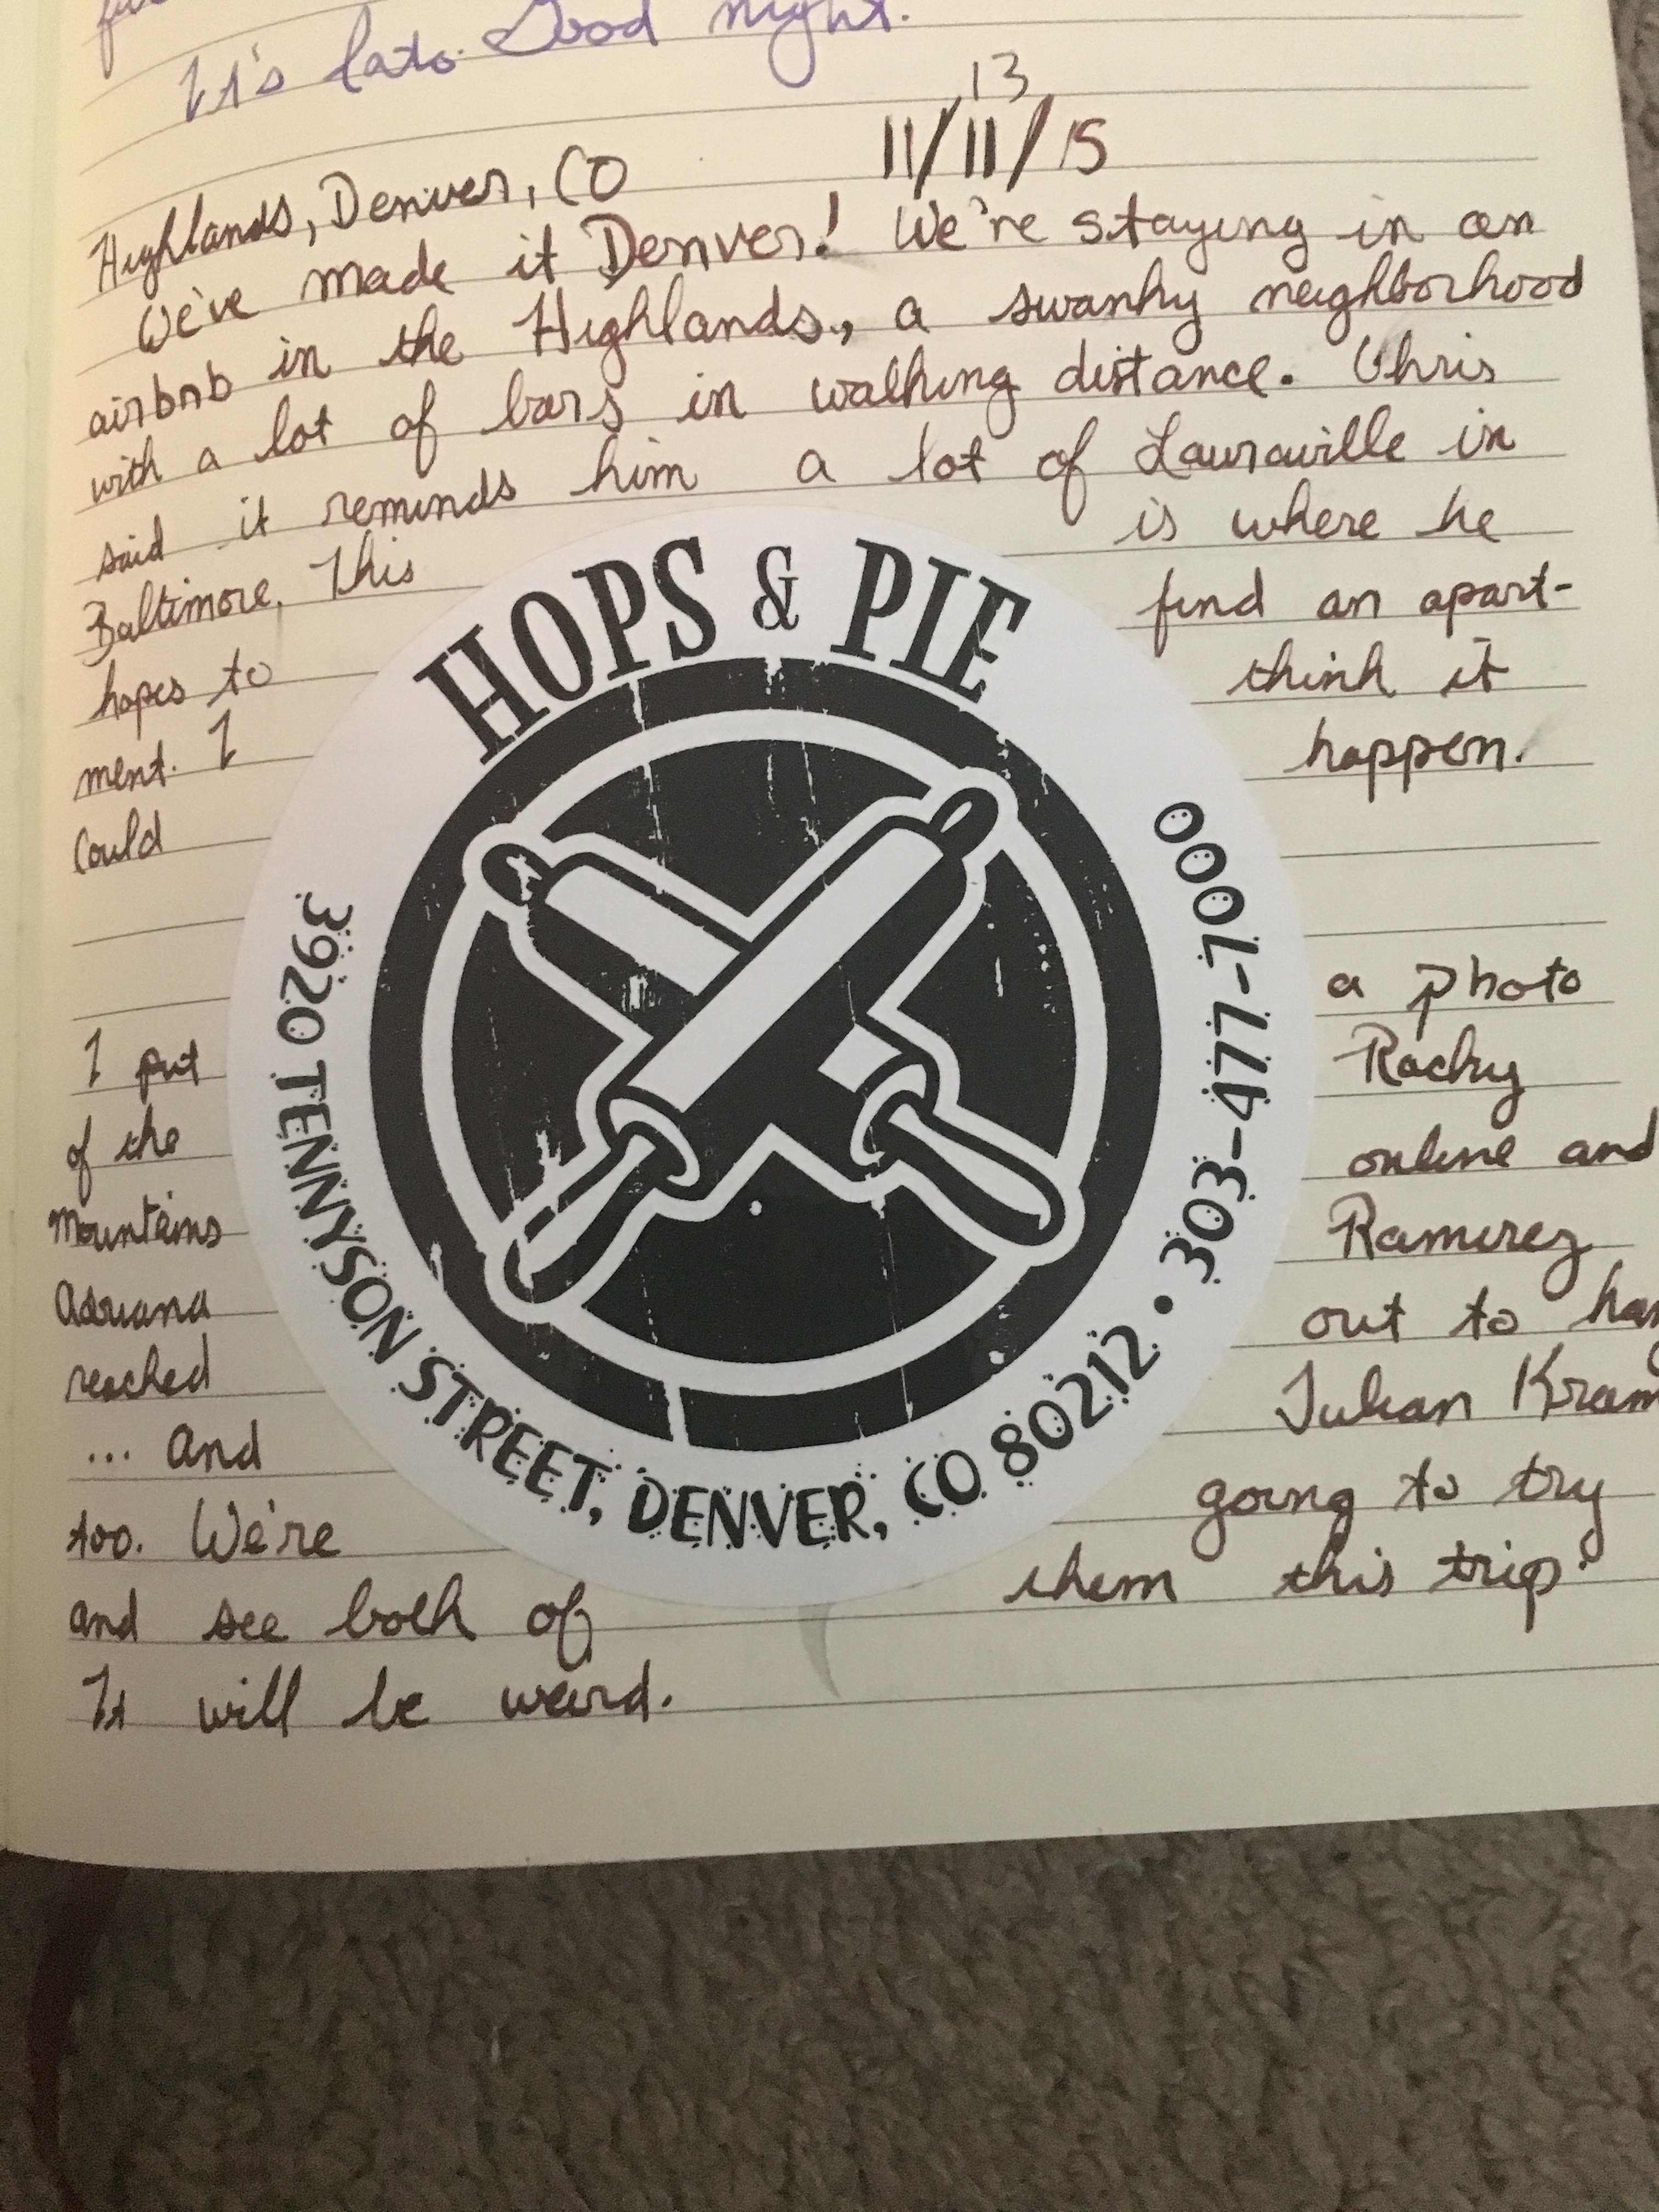 It's late. Good night.
13
11/11/15
Highlands, Denver, CO
We've made it Denver! We're staying in an
airbnb in the Highlands, a swanky neighborhood
with a lot of bars in walking distance. Chris
said it reminds him a lot of Lauraville in
Baltimore. This is where he
hopes to find an apart-
ment. I think it
could happen.
I put a photo
of the Rocky
Mountains online and
Adriana Ramirez
reached out to hang
... and Julian Kram
too. We're going to try
and see both of them this trip.
It will be weird.
HOPS & PIE
3920 TENNYSON STREET, DENVER, CO 80212 • 303-477-7000